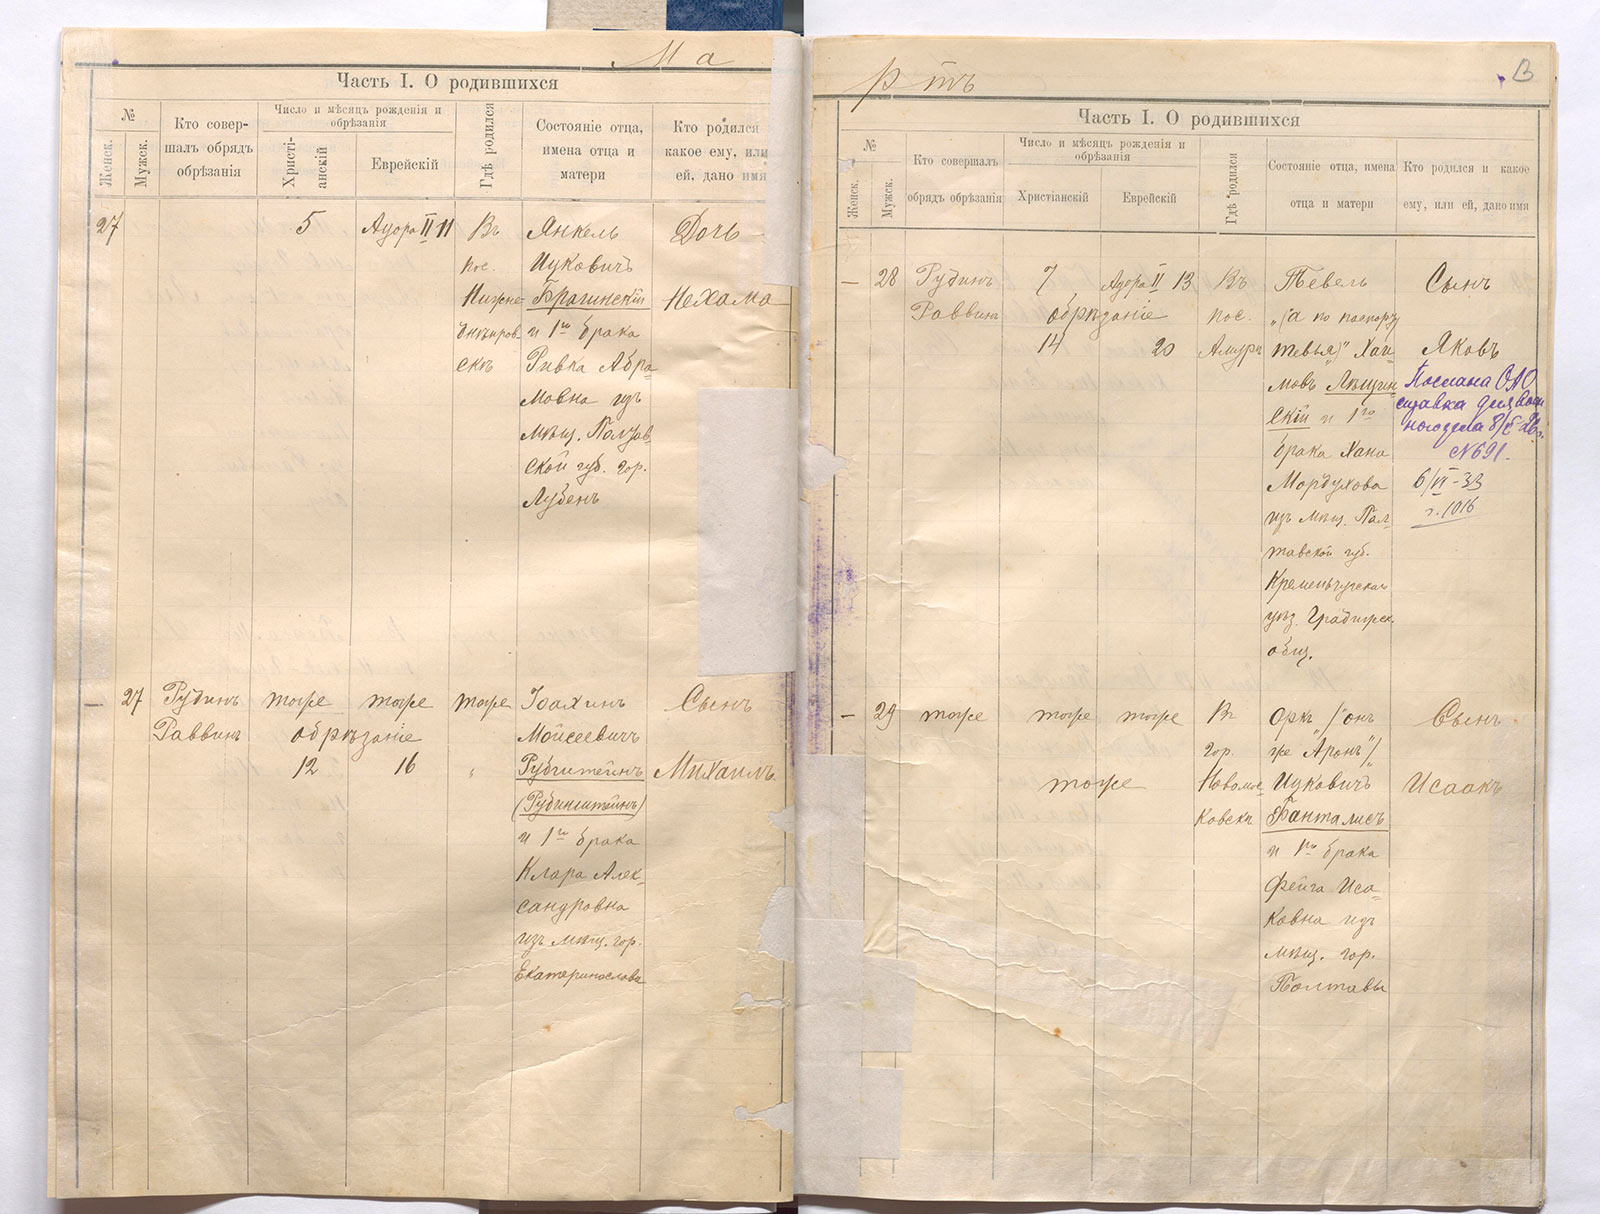 Ма
Часть I. О родившихся
№
Женск.
Мужск.
Кто совер-
шалъ обрядъ
обрѣзанія
Число и мѣсяцъ рожденія и
обрѣзанія
Христі-
анскій
Еврейскій
Гдѣ родился
Состояніе отца,
имена отца и
матери
Кто родился
какое ему, или
ей, дано имя
27
5
Адора II 11
Въ
пос.
Нижне-
днѣпров-
скъ
Янкель
Ицковичъ
Брагинскій
и 1го брака
Ривка Абра-
мовна изъ
мѣщ. Полтав
ской губ. гор.
Лубенъ
Дочь
Нехама
—
27
Рубинъ
Раввинъ
тоже
тоже
обрѣзаніе
12
16
тоже
"
Іоахинъ
Мойсеевичъ
Рубштейнъ
(Рубинштейнъ)
и 1го брака
Клара Алек-
сандровна
изъ мѣщ. гор.
Екатеринослава
Сынъ
Михаилъ
ртъ
В
Часть I. О родившихся
№
Женск.
Мужск.
Кто совершалъ
обрядъ обрѣзанія
Число и мѣсяцъ рожденія и
обрѣзанія
Христіанскій
Еврейскій
Гдѣ родился
Состояніе отца, имена
отца и матери
Кто родился и какое
ему, или ей, дано имя
—
28
Рубинъ
Раввинъ
7
Адора II 13
обрѣзаніе
14
20
Въ
пос.
Амуръ
Тевель
"/а по паспорту
тевья/" Хаи-
мовъ Лещин
скій и 1го
брака Хана
Мордухова
изъ мѣщ. Пол-
тавской губ.
Кременчугскаго
уѣз. Градижск.
общ.
Сынъ
Яковъ
Послана
справка для
№ 691.
6/VI-33
г. 1016
—
29
тоже
тоже
тоже
тоже
Въ
гор.
Новомос-
ковскъ
Оръ /"онъ
же "Аронъ"/
Ицковичъ
Фанталисъ
и 1го брака
Фейга Иса-
ковна изъ
мѣщ. гор.
Полтавы
Сынъ
Исаакъ